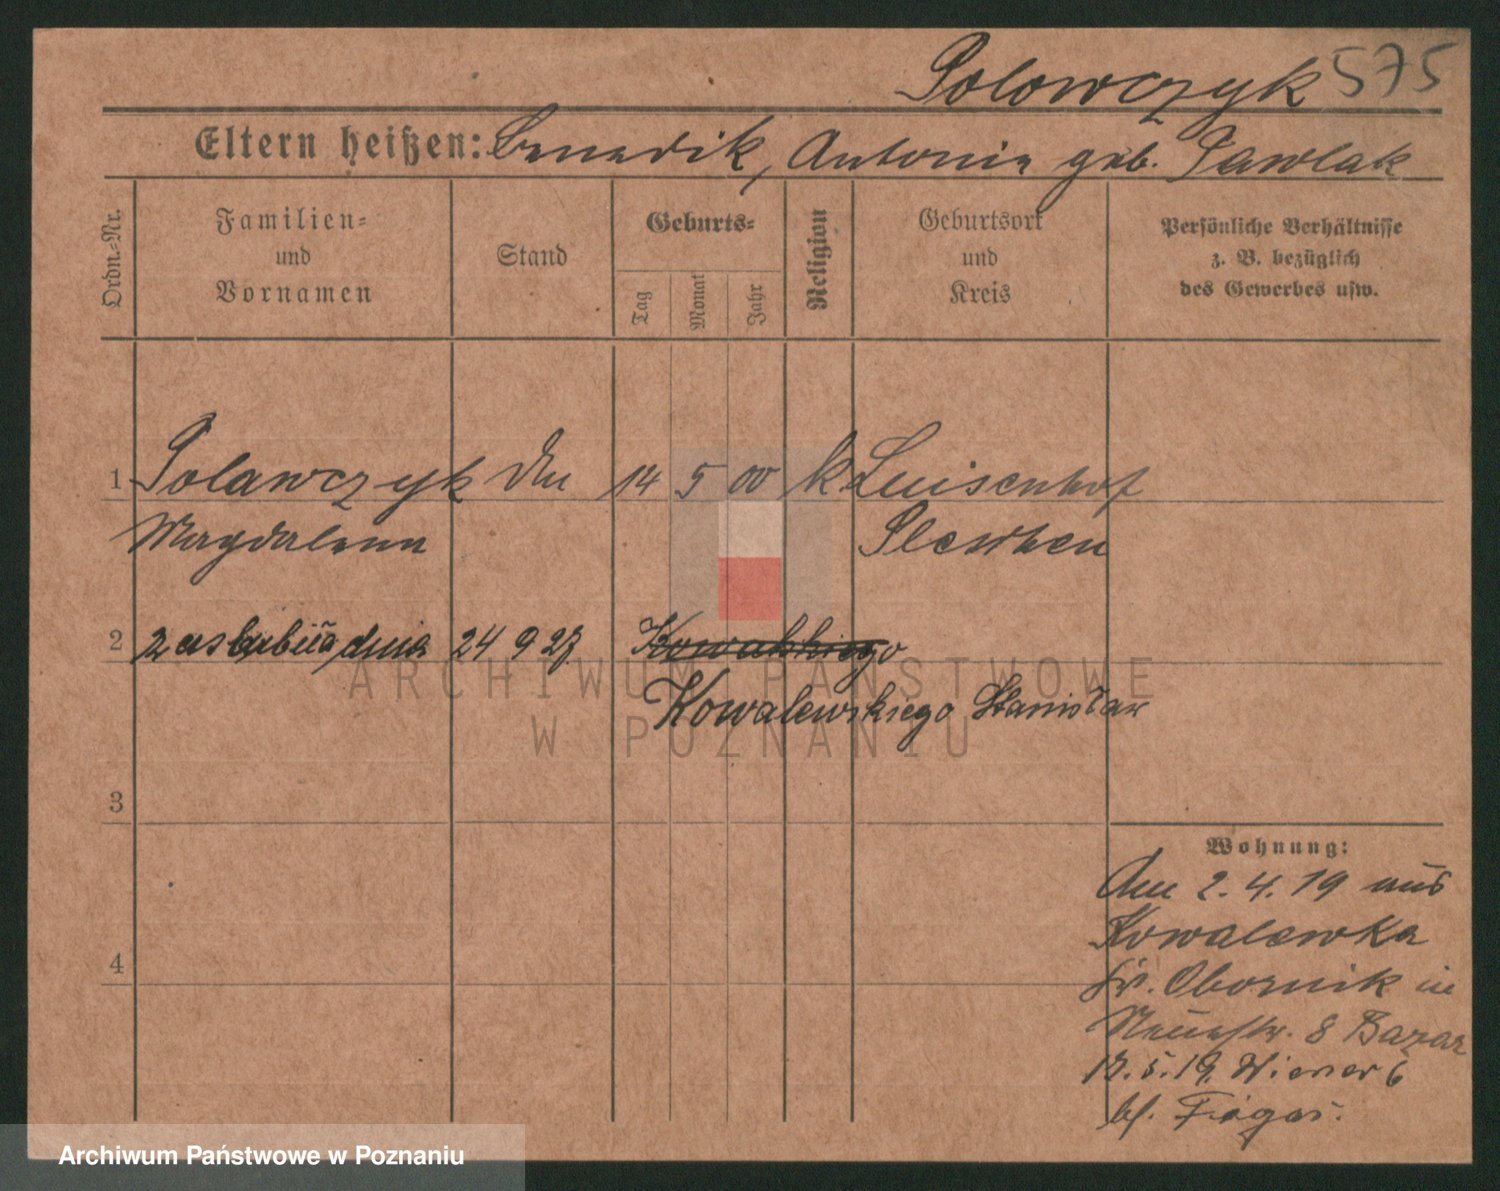 Polowczyk 575
Eltern heißen: Benedik, Antonie geb. Pawlak
Ordn.-Nr.
Familien-
und
Vornamen
Stand
Geburts-
Tag
Monat
Jahr
Religion
Geburtsort
und
Kreis
Persönliche Verhältnisse
z. B. bezüglich
des Gewerbes usw.
1 Polawczyk 14 5 00 k Luisenhof
Magdalena Pleschen
2 zaślubiła dnia 24 9 27 Kowalskiego
Kowalewskiego Stanisław
3
4
Wohnung:
Am 2.4.19 aus
Kowalewka
Kr. Obornik in
Neuestr. 8 Bazar
17.5.19. Wiener 6
bf.
ARCHIWUM PAŃSTWOWE
W POZNANIU
Archiwum Państwowe w Poznaniu